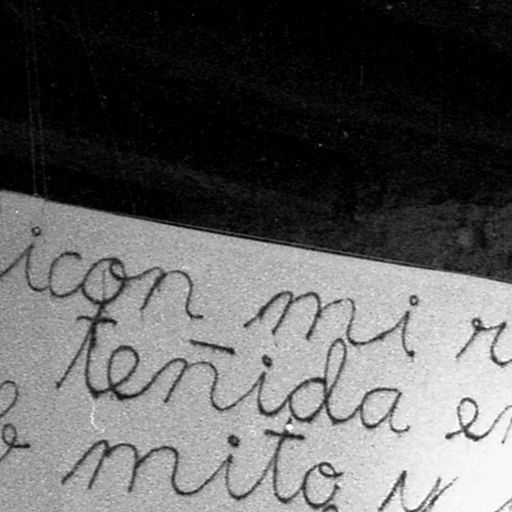 icon mi
teñida
mito y